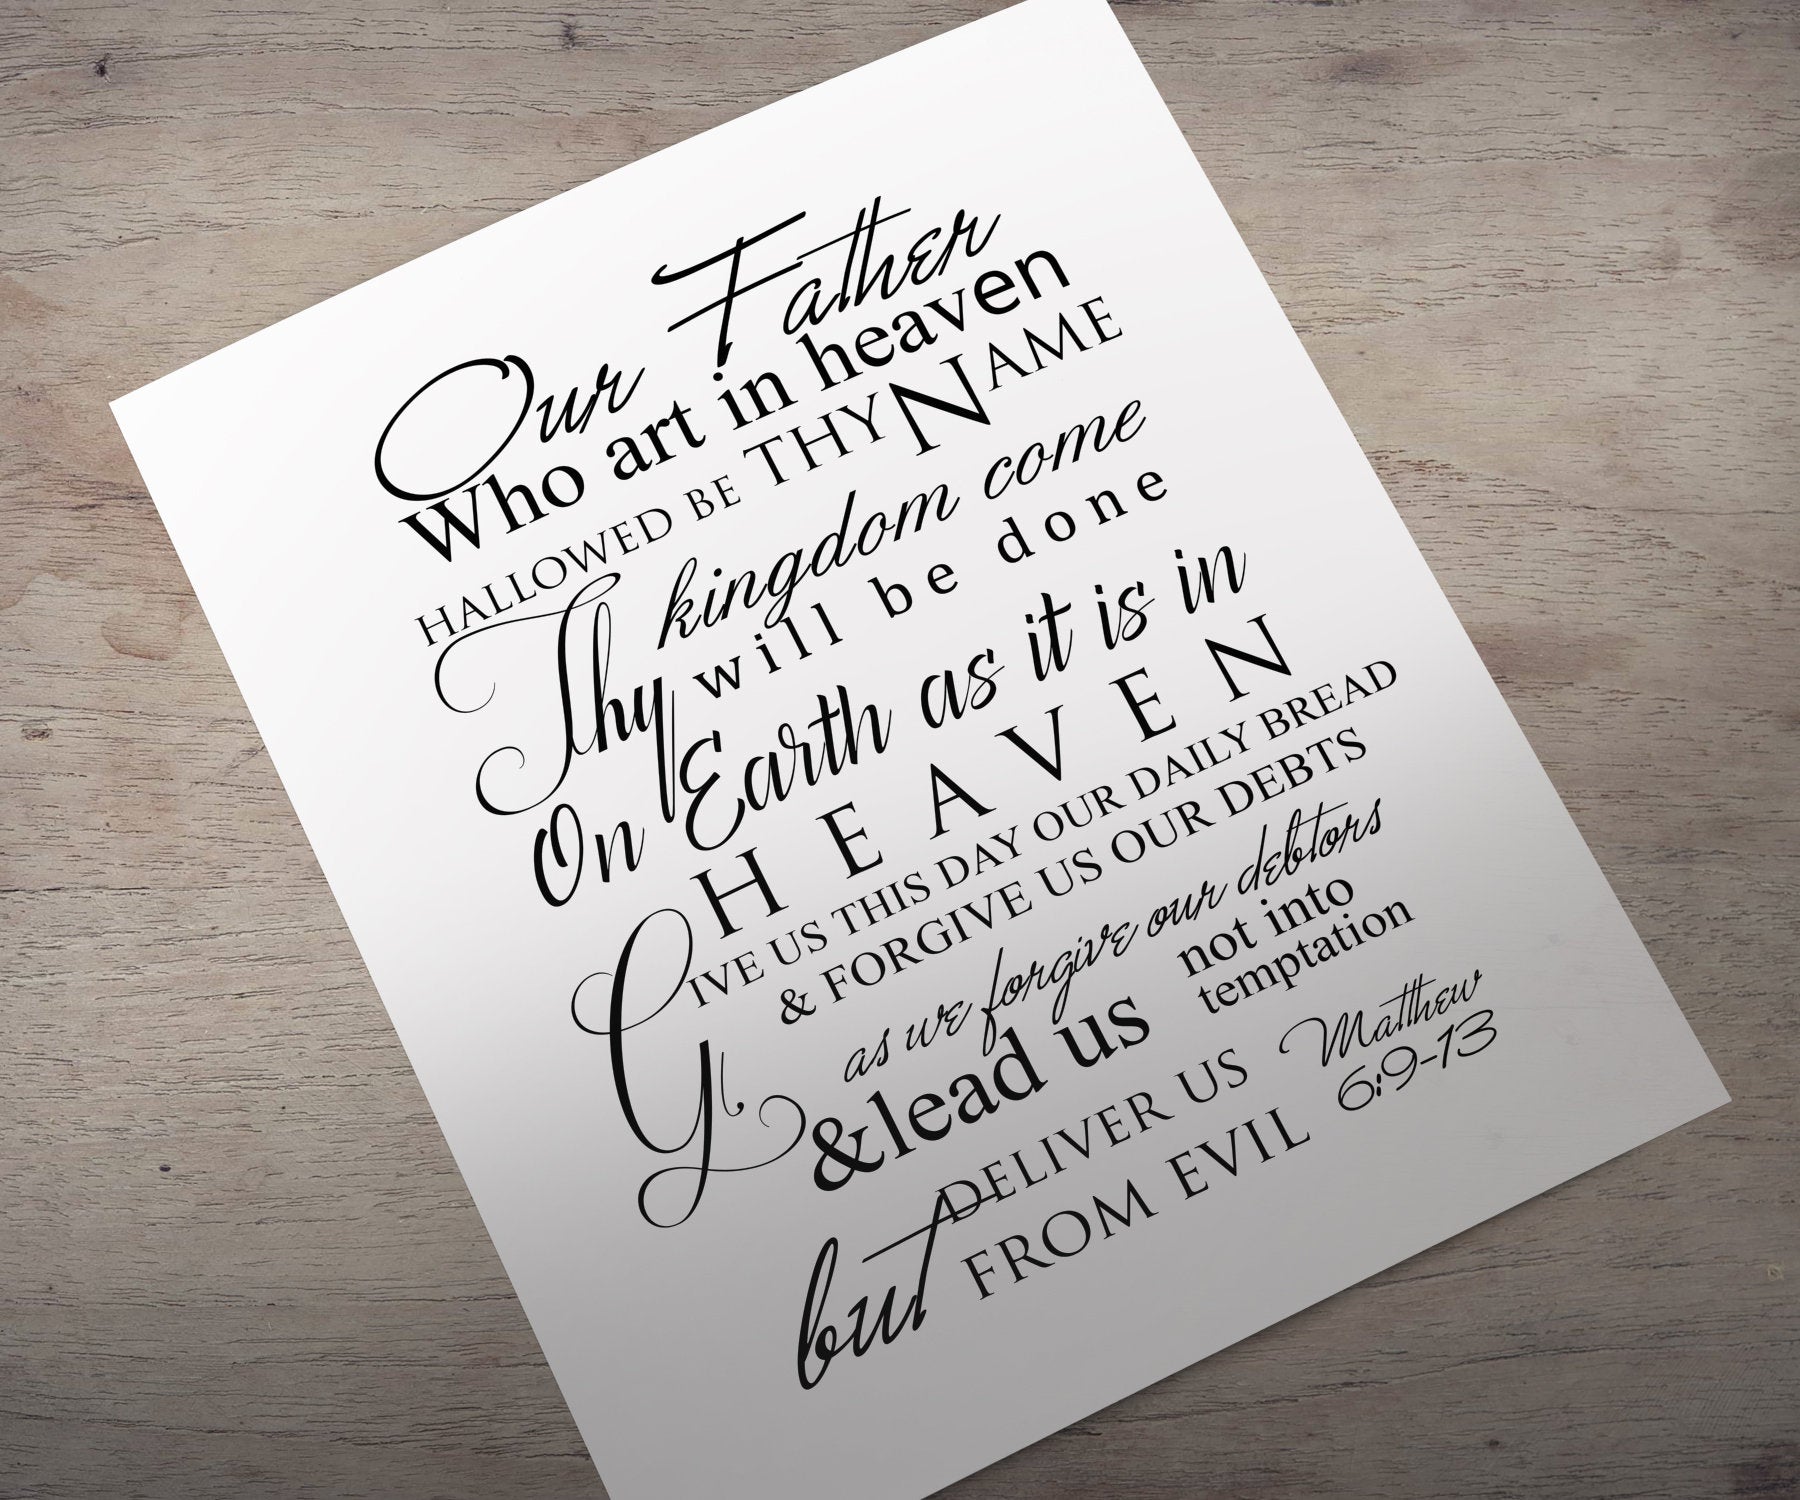 Our Father
Who art in heaven
HALLOWED BE THY NAME
Thy kingdom come
will be done
On Earth as it is in
HEAVEN
GIVE US THIS DAY OUR DAILY BREAD
& FORGIVE US OUR DEBTS
as we forgive our debtors
& lead us not into
temptation
but DELIVER US
FROM EVIL
Matthew
6:9-13